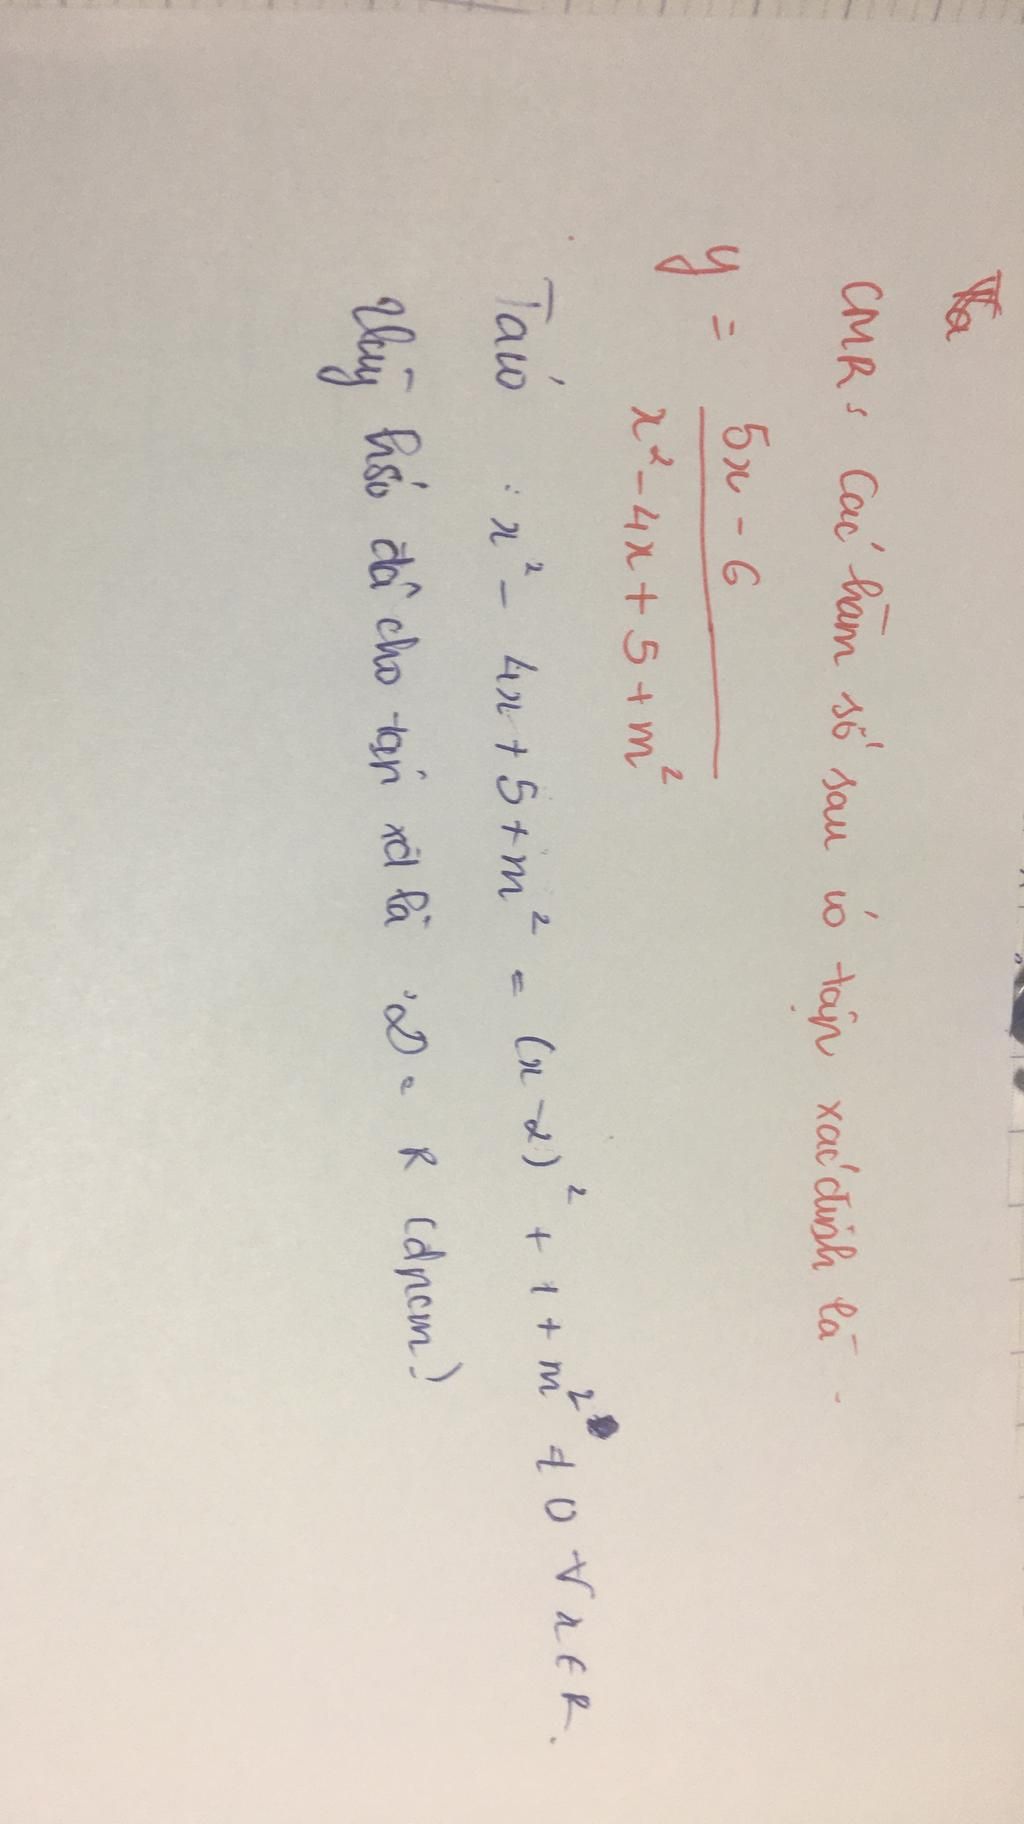 CMR: Các hàm số sau có tập xác định là
y = \frac{5x - 6}{x² - 4x + 5 + m²}
Ta có : x² - 4x + 5 + m² = (x - 2)² + 1 + m² ≠ 0 ∀ x ∈ R.
Vậy hsố đã cho tập xđ là D = R (đpcm)